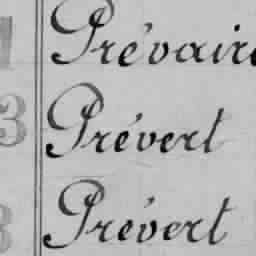 Prévaire
3 Prévert
3 Prévert